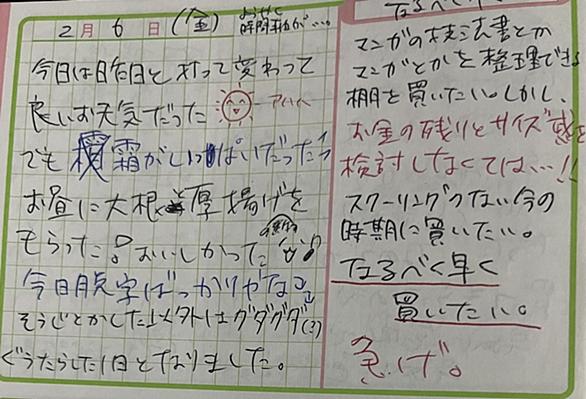 2月 6日 (金)
今日は昨日と打って変わって
良いお天気だった
アハハ
でも 霜がいっぱいだったァ
お昼に大根と厚揚げを
もらった!おいしかった
今日脱字ばっかりやなぁ
そうじとかした以外はグダグダ(?)
ぐうたらした1日となりました。
マンガの技法書とか
マンガとかを整理できる
棚を買いたい。しかし、
お金の残りとサイズ感を
検討しなくては…!!
スクーリングのない今の
時期に買いたい。
なるべく早く
買いたい。
急げ。